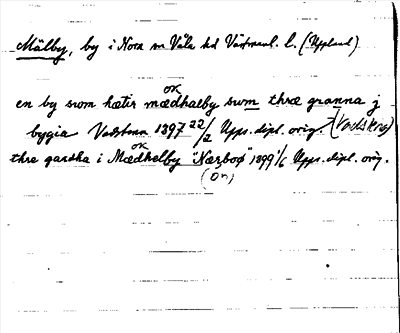 Mälby, by i Nora sn Våla hd Västmanl. l. (Uppland)
ok
en by swm hætir mædhalby swm thræ granna j
bygia Vadstena 1397 22/2 Upps. dipl. orig. (Vadskro)
ok
thre gardha i Mædhelby "Nærboø" 1399 1/6 Upps. dipl. orig.
(On)